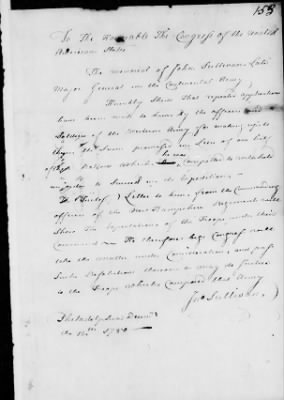 153
To The Honorable The Congress of the United
American States
The memorial of John Sullivan Late
Major General in the Continental Army
Humbly Shews That repeated applications
have been made to him by the officers and
Soldiers of the western Army for making good
the Sum promised in Lieu of one half
of the Rations which he was Compelled to
to Succeed in the Expedition
Letter to him from the Commanding
officers of the New Hampshire Regiments will
Shew the expectations of the Troops under their
Command He therefore begs Congress will
take the matter under Consideration and pass
Such Resolutions thereon as may do Justice
to the Troops which Composed that Army
Jno Sullivan
Philadelphia
1780